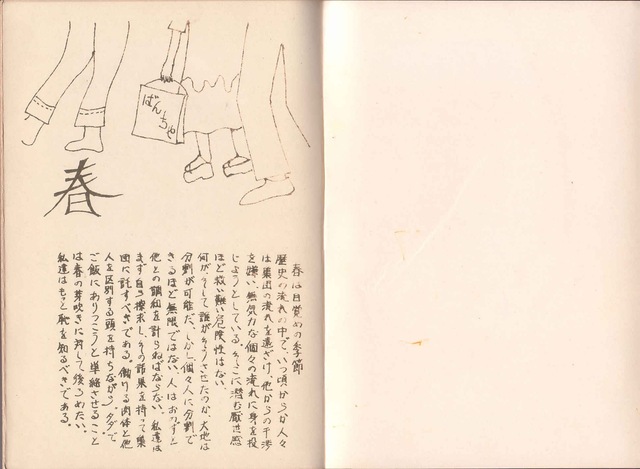 ばんちゃ
春
春は目覚めの季節
歴史の流れの中で、いつ頃からか人々
は集団の流れを遠ざけ、他からの干渉
を嫌い、無気力な個々の流れに身を投
じようとしている。そこに潜む厭世感
ほど救い難い危険性はない。
何が、そして誰がそうさせたのか、大地は
分割が可能だ、しかし個々人に分割で
きるほど無限ではない。人はおのずと
他との調和を計らねばならない。私達は
まず自己探求し、その結果を持って集
団に託すべきである。働ける肉体と他
人を区別する頭を持ちながら、タダで
ご飯にありつこうと単縮させること
は春の芽吹きに対して後ろめたい。
私達はもっと恥を知るべきである。